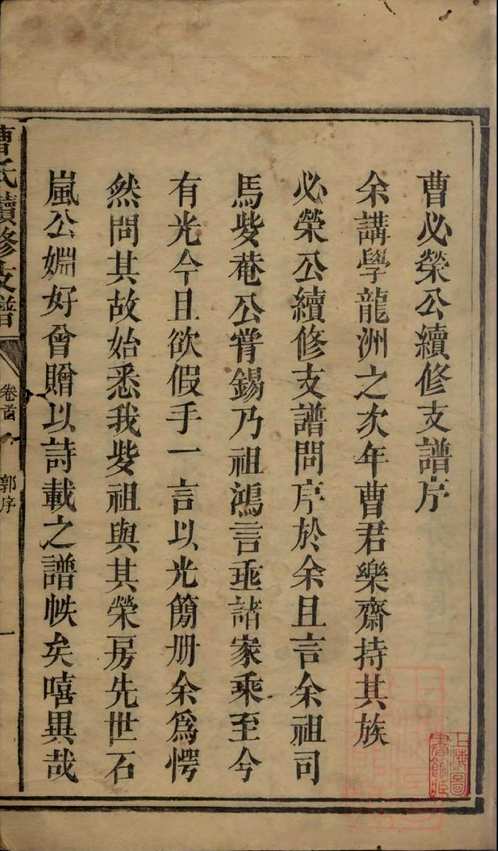 曹必榮公續修支譜序
余講學龍洲之次年曹君樂齋持其族
必榮公續修支譜問序於余且言余祖司
馬峕菴公嘗錫乃祖鴻言垂諸家乘至今
有光今且欲假手一言以光簡册余爲愕
然問其故始悉我峕祖與其榮房先世石
嵐公婣好曾贈以詩載之譜帙矣嘻異哉
曹氏續修支譜
卷首
郭序
一